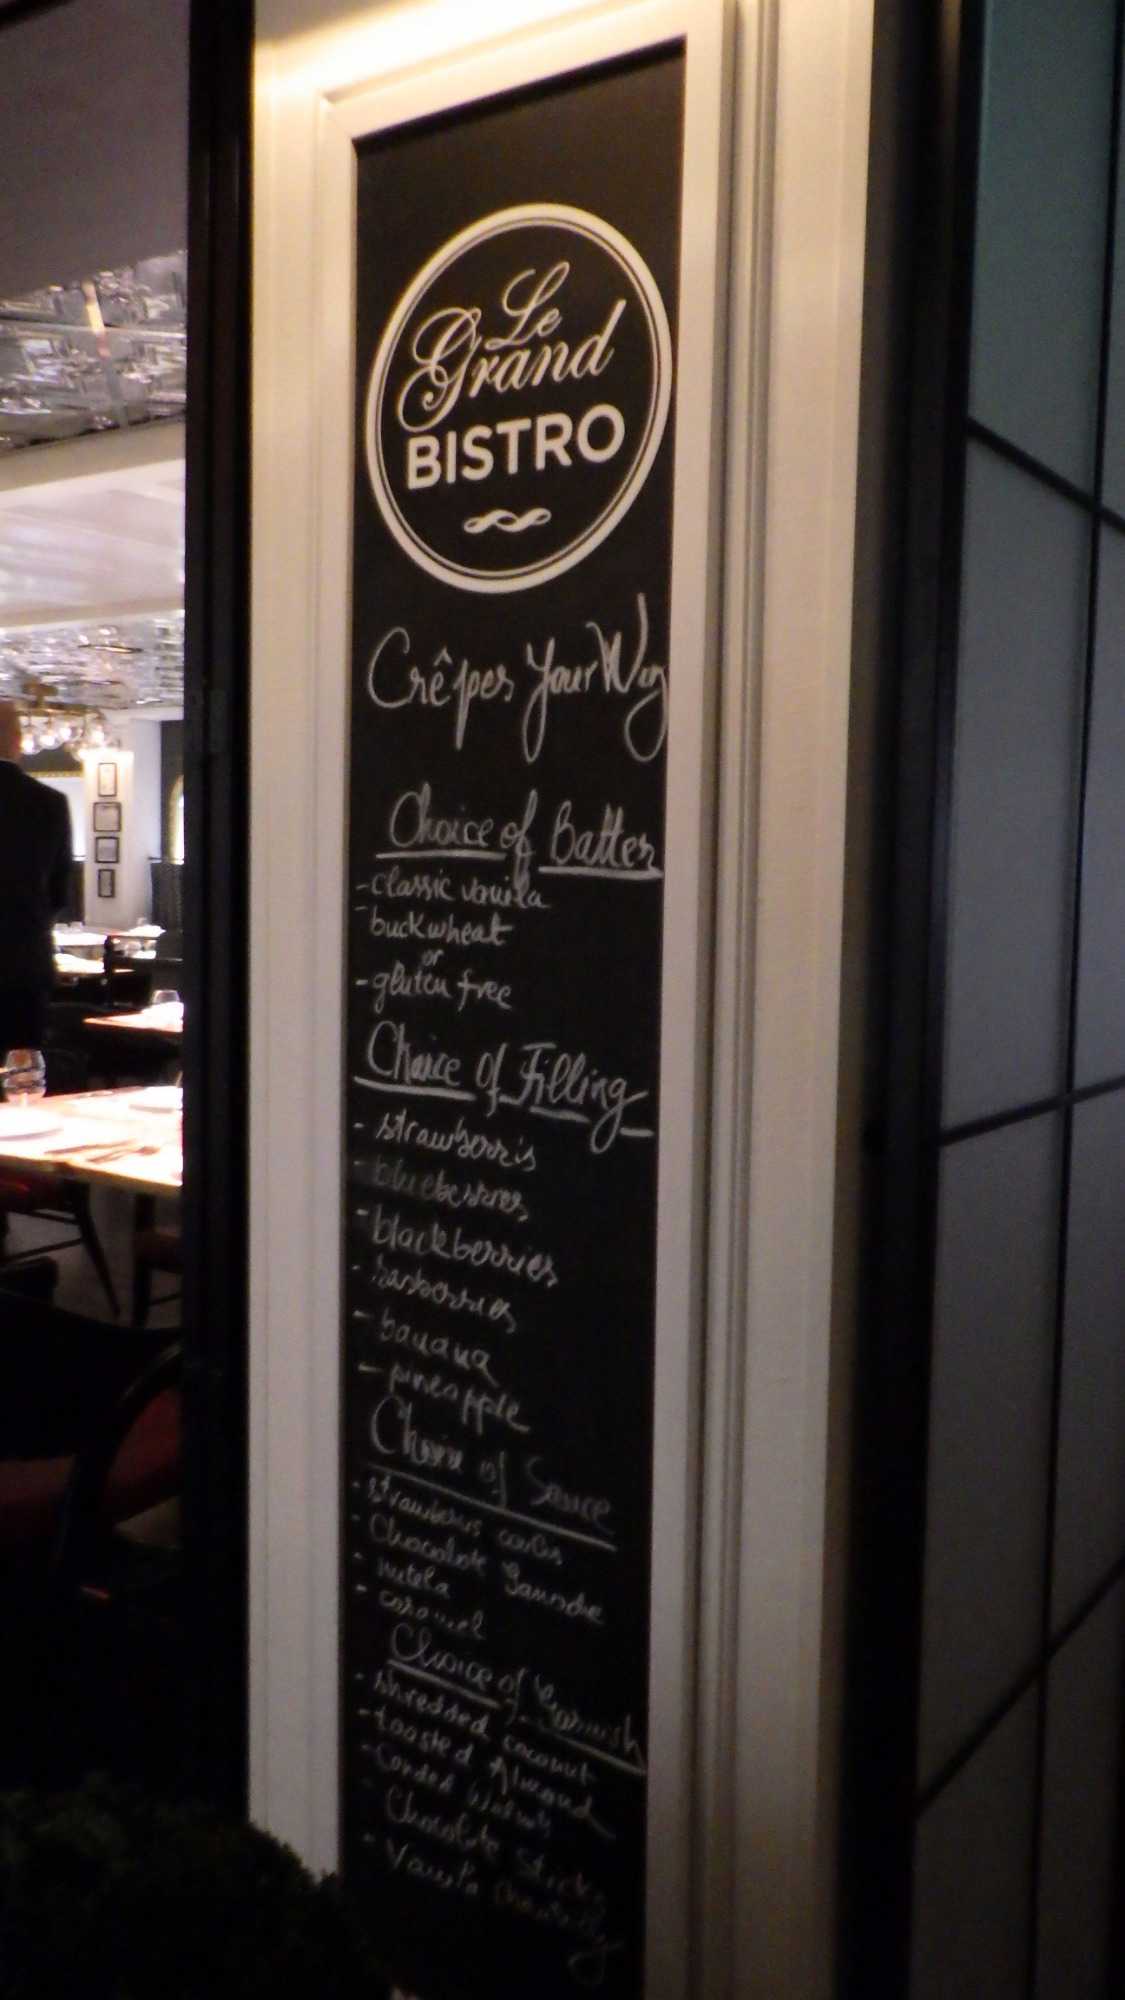 Le
Grand
BISTRO
Crêpes Your Way
Choice of Batter
- classic vanilla
- buckwheat
or
- gluten free
Choice of Filling
- strawberris
- blueberries
- blackberries
- rasberries
- banana
- pineapple
Choice of Sauce
- strawberry
- Chocolate Ganache
- nutela
- caramel
Choice of Garnish
- shredded coconut
- toasted Almond
- Walnuts
- Chocolate Sticks
- Vanilla Chantilly